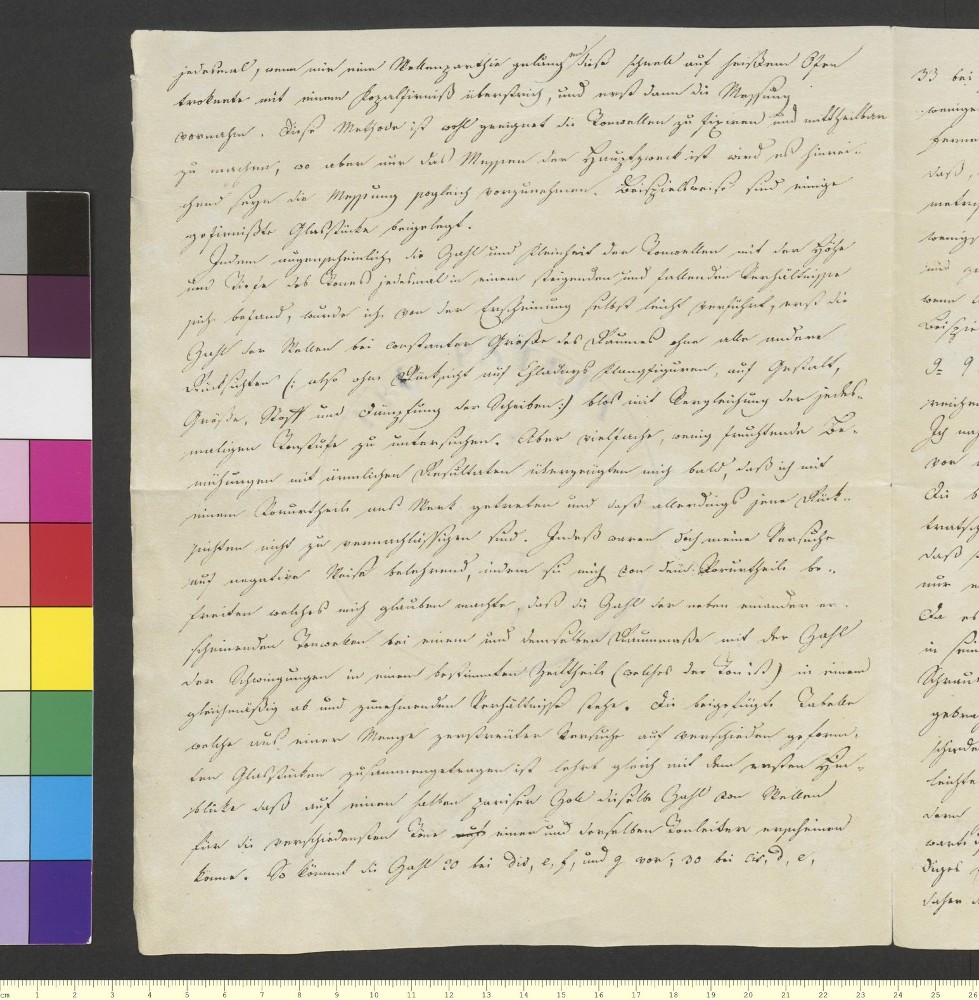 jedesmal, wenn mir eine Wellenparthie gelang, und diese schnell auf heißem Ofen
troknete mit einem Kopalfirniß überstrich, und erst dann die Messung
vornahm. Diese Methode ist wohl geeignet die Tonwellen zu fixiren und mittheilbar
zu machen, wo aber nur das Messen der Hauptzweck ist wird es hinrei-
chend seyn die Messung sogleich vorzunehmen. Beispielsweise sind einige
gefirnißte Glasstücke beigelegt.
Indem augenscheinlich die Zahl und Kleinheit der Tonwellen mit der Höhe
und Tiefe des Tones jedesmal in einem steigenden und fallenden Verhältnisse
sich befand, wurde ich von der Erscheinung selbst leicht verführt, erst die
Zahl der Wellen bei constanter Größe des Raumes ohne alle andere
Rücksichten (: also ohne Rücksicht auf Chladnys Klangfiguren, auf Gestalt,
Größe, Stoff und Dämpfung der Scheiben :) blos mit Vergleichung der jedes-
maligen Tonstufe zu untersuchen. Aber vielfache, wenig fruchtende Be-
mühungen mit ärmlichen Resultaten überzeugten mich bald, daß ich mit
einem Vorurtheile ans Werk getreten und daß allerdings jene Rück-
sichten nicht zu vernachlässigen sind. Indeß waren doch meine Versuche
auf negative Weise belehrend, indem sie mich von dem Vorurtheile be-
freiten welches mich glauben machte, daß die Zahl der neben einander er-
scheinenden Tonwellen bei einem und demselben Raummaße mit der Zahl
der Schwingungen in einem bestimmten Zeittheile (welches der Ton ist) in einem
gleichmäßig ab und zunehmenden Verhältnisse stehe. Die beigefügte Tabelle
welche aus einer Menge zerstreuter Versuche auf verschieden geform-
ten Glasstücken zusammengetragen ist lehrt gleich mit dem ersten Hin-
blicke daß auf einen halben pariser Zoll dieselbe Zahl von Wellen
für die verschiedensten Töne einer und derselben Tonleiter erscheinen
könne. So kömmt die Zahl 20 bei dis, e, f, und g vor; 30 bei cis, d, e,
33 bei
wenige
ferne
daß
wenn
Ich
vor
Die
daß
nur
Da es
in
leichte
denn
daher